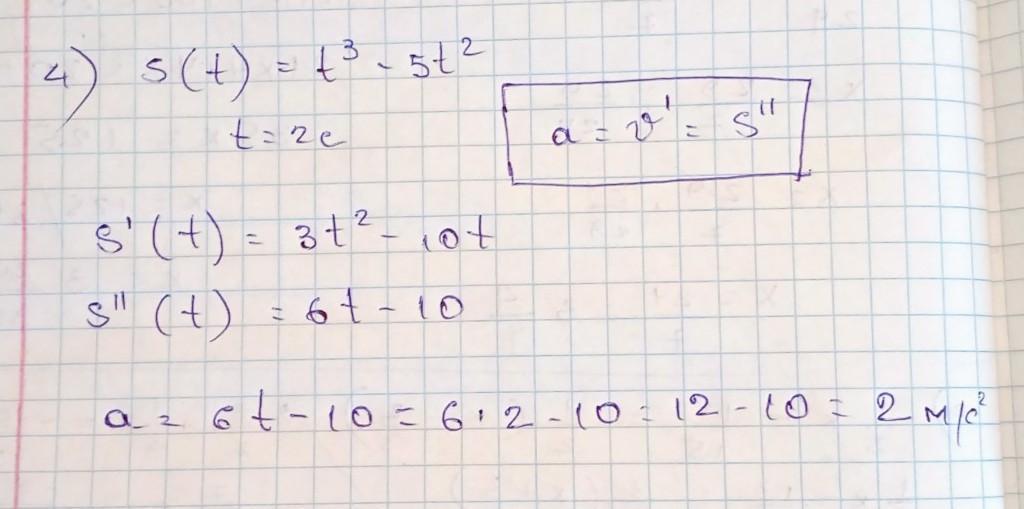 4) S(t) = t³ - 5t²
t = 2c
a = v' = S''
S'(t) = 3t² - 10t
S''(t) = 6t - 10
a = 6t - 10 = 6·2 - 10 = 12 - 10 = 2 м/с²